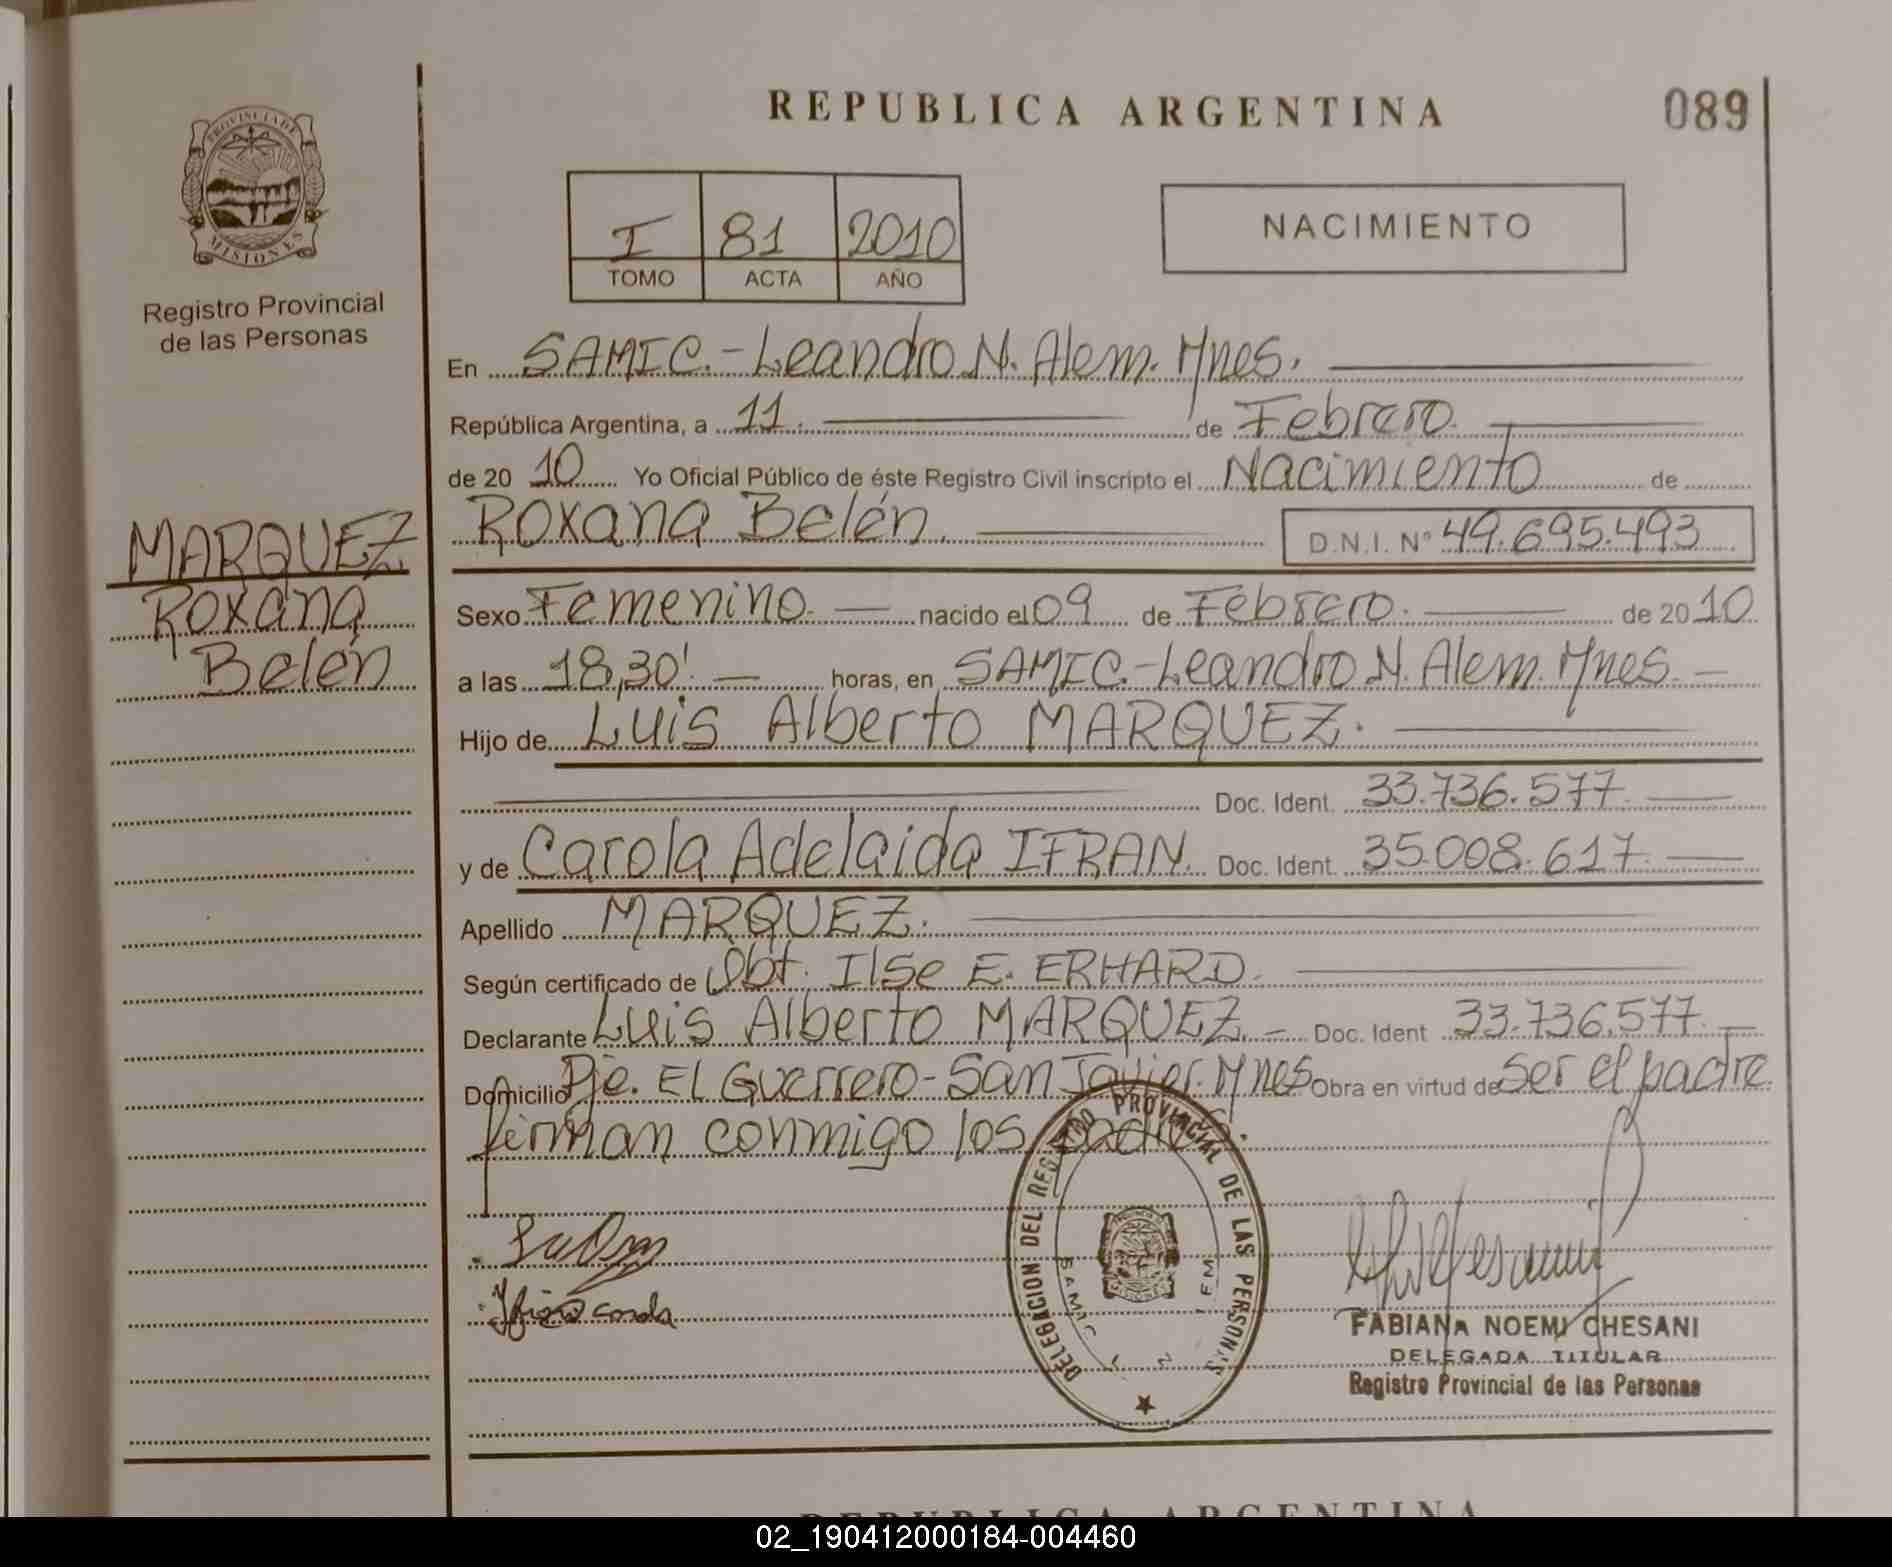 REPUBLICA ARGENTINA
089
PROVINCIA DE
MISIONES
Registro Provincial
de las Personas
I 81 2010
TOMO ACTA AÑO
NACIMIENTO
En SAMIC.-Leandro N. Alem. Mnes.
República Argentina, a 11. de Febrero.
de 20 10 Yo Oficial Público de éste Registro Civil inscripto el Nacimiento de
Roxana Belén. D.N.I. Nº 49.695.493
MARQUEZ
Roxana
Belén
Sexo Femenino. nacido el 09 de Febrero. de 20 10
a las 18,30'. horas, en SAMIC.-Leandro N. Alem. Mnes.
Hijo de Luis Alberto MARQUEZ.
Doc. Ident. 33.736.577.
y de Carola Adelaida IFRAN. Doc. Ident. 35.008.617.
Apellido MARQUEZ.
Según certificado de Obt. Ilse E. ERHARD.
Declarante Luis Alberto MARQUEZ. Doc. Ident 33.736.577.
Domicilio Pje. El Guerrero-San Javier. Mnes Obra en virtud de ser el padre.
firman conmigo los padres.
DELEGACION DEL REGISTRO PROVINCIAL DE LAS PERSONAS
SAMIC L N
FABIANA NOEMI CHESANI
DELEGADA TITULAR
Registro Provincial de las Personas
REPUBLICA ARGENTINA
02_190412000184-004460